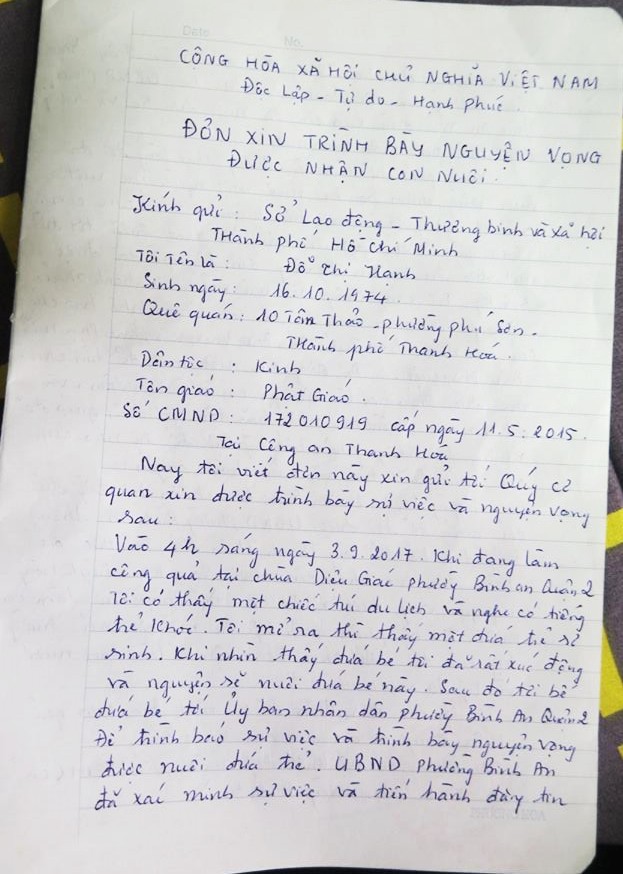 Date No.
CỘNG HÒA XÃ HỘI CHỦ NGHĨA VIỆT NAM
Độc Lập - Tự do - Hạnh phúc.
ĐƠN XIN TRÌNH BÀY NGUYỆN VỌNG
ĐƯỢC NHẬN CON NUÔI.
Kính gửi : Sở Lao động - Thương binh và xã hội
Thành phố Hồ Chí Minh
Tôi Tên là : Đỗ Thị Hạnh
Sinh ngày : 16.10.1974.
Quê quán : 10 Tân Thảo - phường phú Sơn -
Thành phố Thanh Hoá.
Dân tộc : Kinh
Tôn giáo : Phật Giáo.
Số CMND : 172010919 cấp ngày 11.5.2015.
Tại Công an Thanh Hóa
Nay tôi viết đơn này xin gửi tới Quý cơ
quan xin được trình bày sự việc và nguyện vọng
sau :
Vào 4h sáng ngày 3.9.2017. Khi đang làm
công quả tại chùa Diệu Giác phường Bình an Quận 2
Tôi có thấy một chiếc túi du lịch và nghe có tiếng
trẻ khóc. Tôi mở ra thì thấy một đứa trẻ sơ
sinh. Khi nhìn thấy đứa bé tôi đã rất xúc động
và nguyện sẽ nuôi đứa bé này. Sau đó tôi bế
đứa bé tới Ủy ban nhân dân phường Bình An Quận 2
Để trình báo sự việc và trình bày nguyện vọng
được nuôi đứa trẻ. UBND phường Bình An
đã xác minh sự việc và tiến hành đăng tin